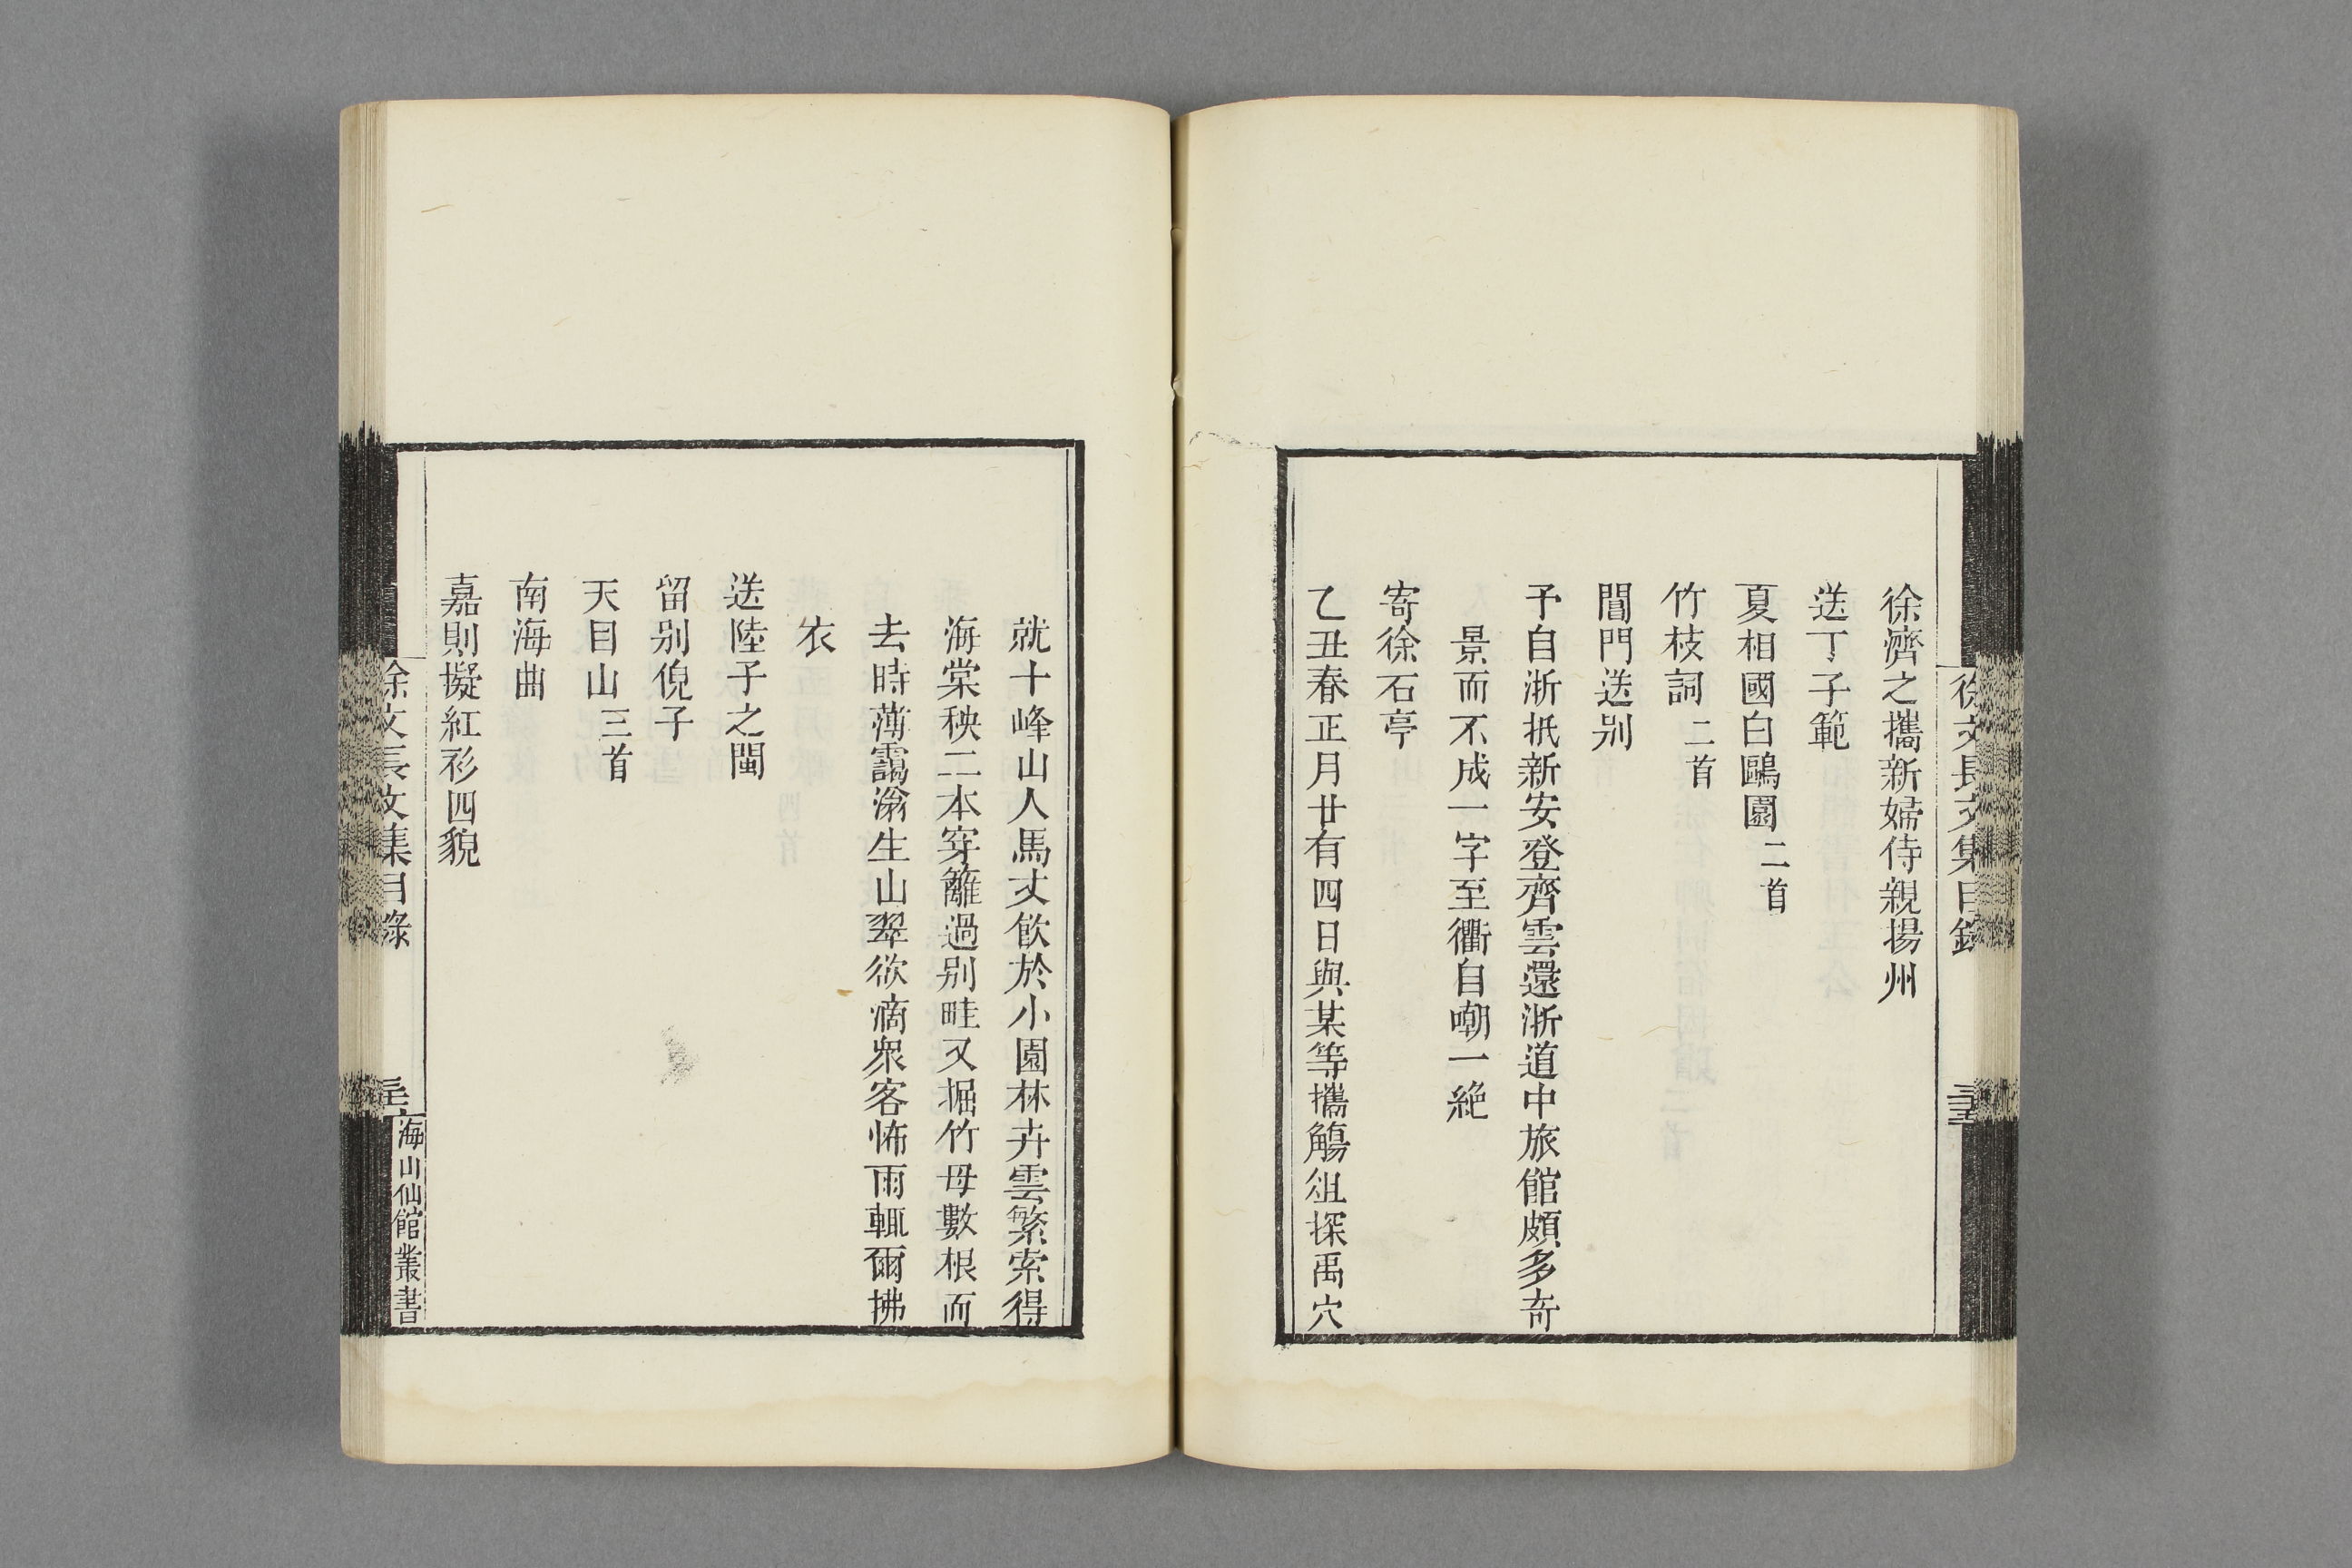 徐文長文集目錄
徐濟之攜新婦侍親揚州
送丁子範
夏相國白鷗園二首
竹枝詞二首
閶門送别
予自浙抵新安登齊雲還浙道中旅館頗多奇
景而不成一字至衢自嘲一絶
寄徐石亭
乙丑春正月廿有四日與某等攜觴俎探禹穴
就十峰山人馬丈飲於小園林卉雲繁索得
海棠秧二本穿籬過别畦又掘竹母數根而
去時薄靄滃生山翠欲滴衆客怖雨輒爾拂
衣
送陸子之閩
留别倪子
天目山三首
南海曲
嘉則擬紅衫四貌
徐文長文集目錄
海山仙館叢書